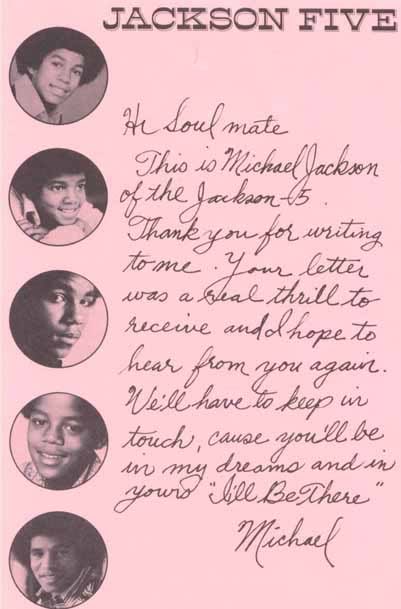 JACKSON FIVE
Hi Soul mate
This is Michael Jackson
of the Jackson-5.
Thank you for writing
to me. Your letter
was a real thrill to
receive and I hope to
hear from you again.
We'll have to keep in
touch, cause you'll be
in my dreams and in
yours "I'll Be There"
Michael